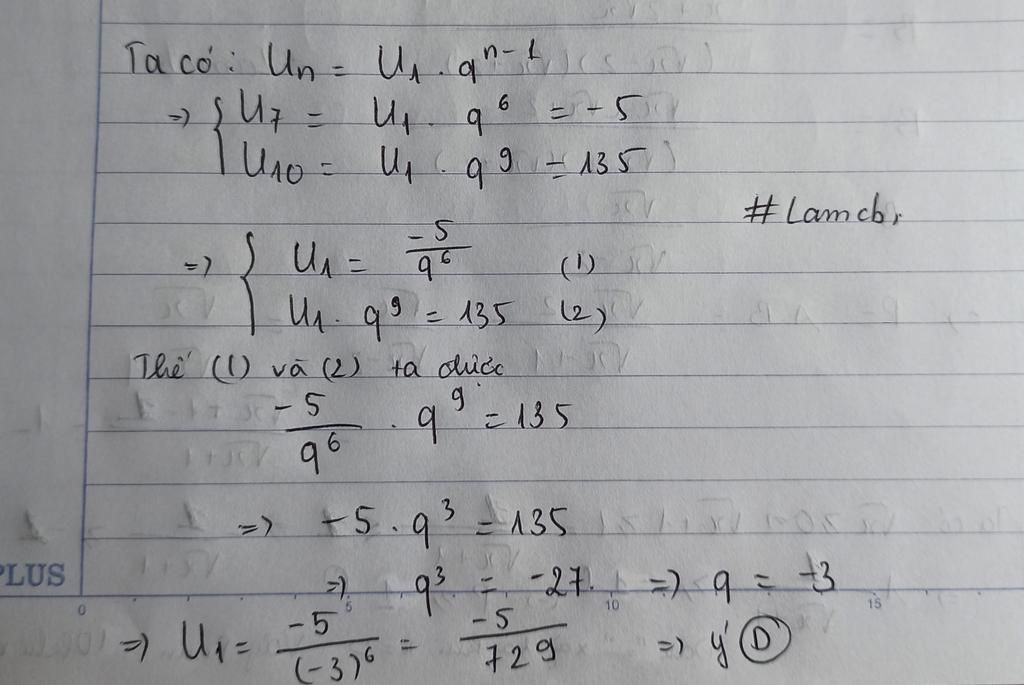 Ta có: Un = U1 . q^n-1
=> { U7 = U1 . q^6 = -5
U10 = U1 . q^9 = 135
# Lamcb,
=> { U1 = -5/q^6 (1)
U1 . q^9 = 135 (2)
Thế (1) và (2) ta được
-5/q^6 . q^9 = 135
=> -5 . q^3 = 135
=> q^3 = -27. => q = -3
PLUS
0 5 10 15
=> U1 = -5/(-3)^6 = -5/729 => ý D